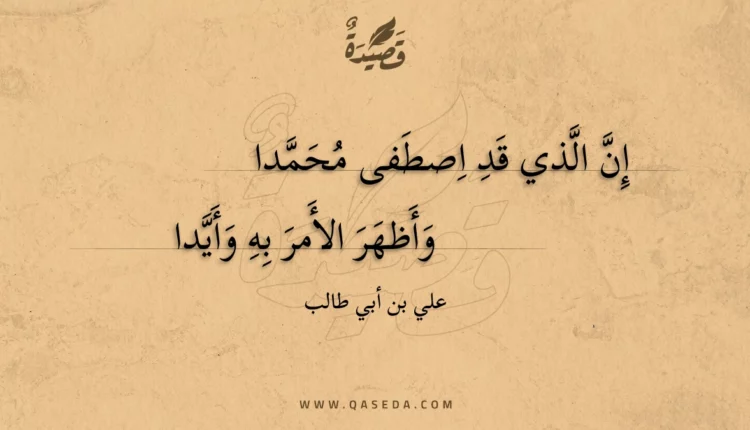 قَصِيدَةٌ
إِنَّ الَّذي قَدِ اِصطَفى مُحَمَّدا
وَأَظهَرَ الأَمرَ بِهِ وَأَيَّدا
علي بن أبي طالب
WWW.QASEDA.COM